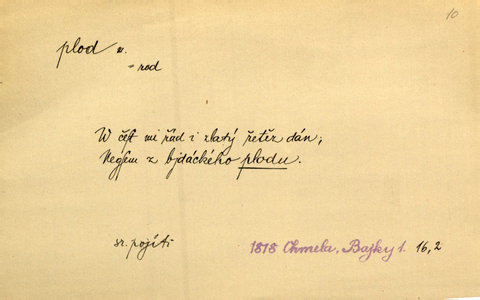 10
plod m.
= rod
W čest mi řád i zlatý řetěz dán;
Negsem z bjdáckého plodu.
sr. pojíti
1818 Chmela, Bajky 1. 16,2